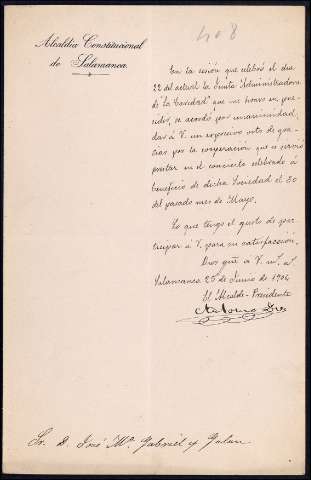 408
Alcaldía Constitucional
de Salamanca.
En la sesión que celebró el día
22 del actual la Junta Administradora
de "La Caridad" que me honro en pre-
sidir, se acordó por unanimidad,
dar á V. un expresivo voto de gra-
cias por la cooperación que se sirvió
prestar en el concierto celebrado á
beneficio de dicha Sociedad el 30
del pasado mes de Mayo.
Lo que tengo el gusto de par-
ticipar á V. para su satisfacción.
Dios gue á V. ms. as.
Salamanca 25 de Junio de 1904
El Alcalde-Presidente
Sr. D. José Ma. Gabriel y Galan